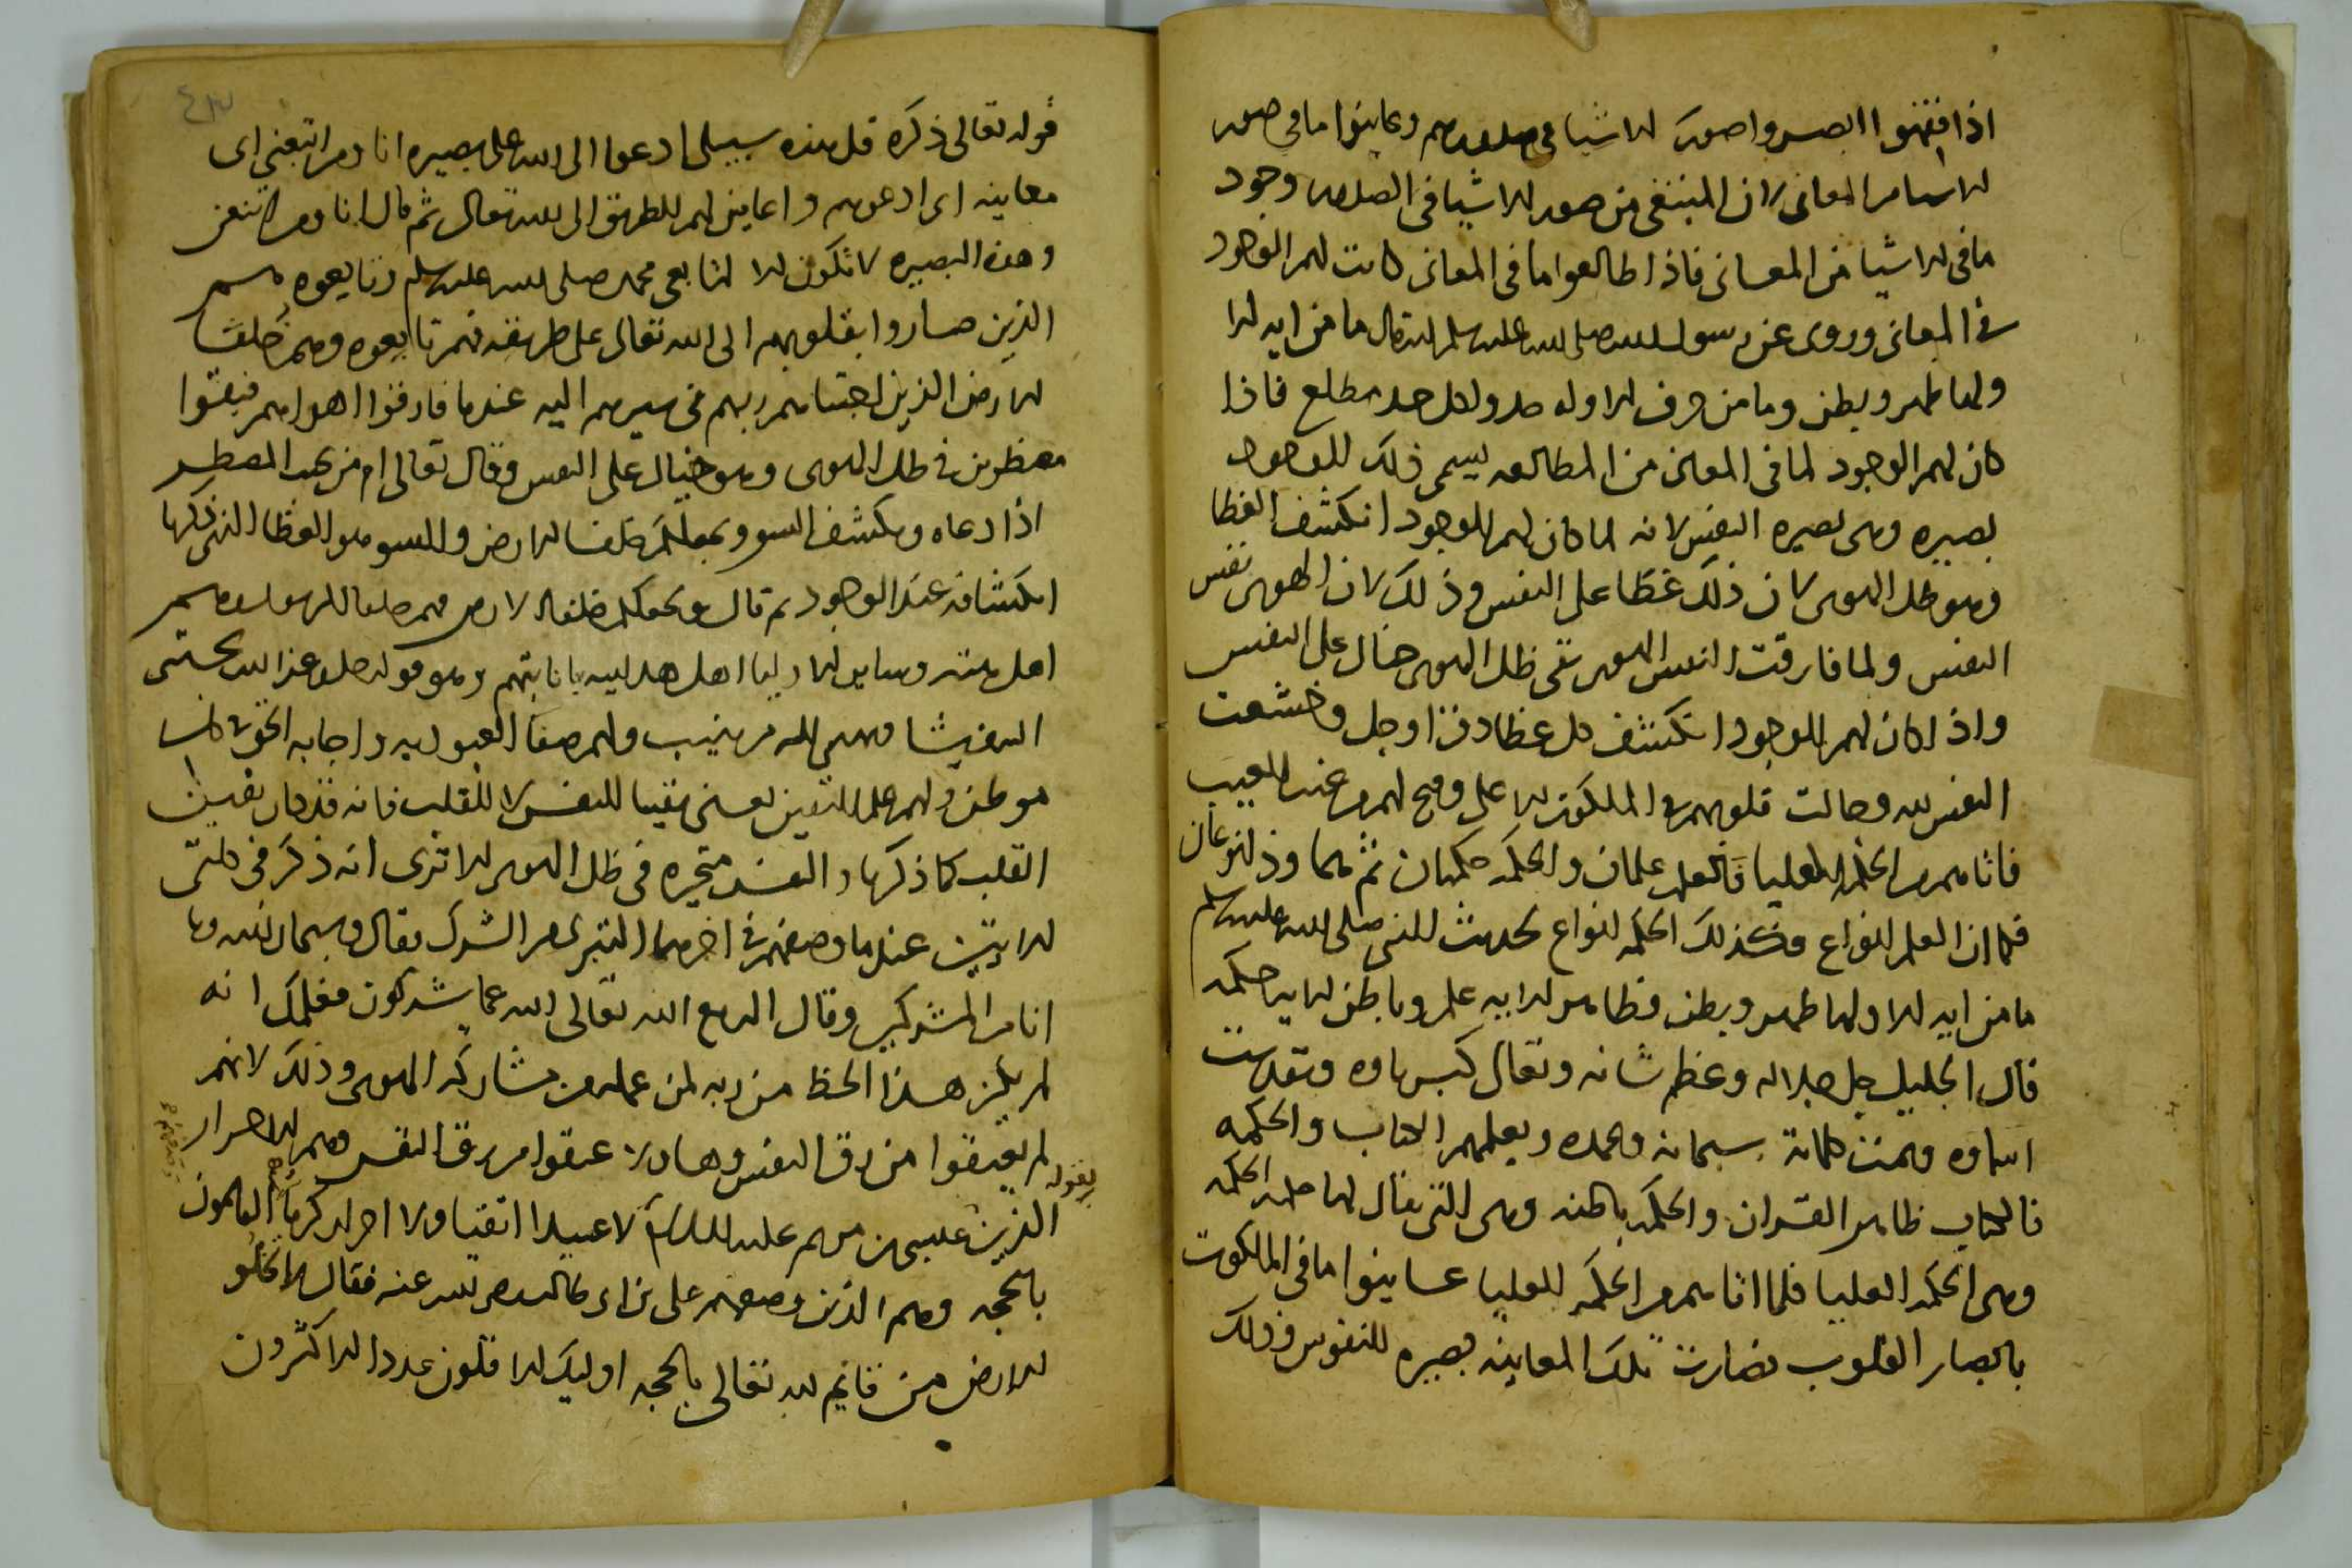 اذا فقهوا ابصروا صور الاشيا في صدورهم وعاينوا ما في صور
الاشيا من المعاني لان المبتغى من صور الاشيا في الصدور وجود
ما في الاشيا من المعاني فاذا طالعوا ما في المعاني كانت لهم الوجود
في المعاني وروي عن رسول الله صلى الله عليه وسلم انه قال ما من ايه الا
ولها ظهر وبطن وما من حرف الا وله حد ولكل حد مطلع فاذا
كان لهم الوجود لما في المعاني من المطالعه يسمى ذلك الوجود
بصيره وهي بصيره النفس لانه لما كان لهم الوجود انكشف الغطا
وهو ظل الهوى كان ذلك غطا على النفس وذلك لان الهوى نفس
النفس ولما فارقت النفس الهوى بقي ظل الهوى خيال على النفس
واذا كان لهم الوجود انكشف كل غطا دون الله عز وجل وخشعت
النفس لله وجالت قلوبهم في الملكوت الاعلى وفتح لهم من الغيب
فاتاهم من الحكمه العليا فالعلم علمان والحكمه حكمتان ثم هما وذلك نوعان
فكما ان العلم انواع فكذلك الحكمه انواع لحديث النبي صلى الله عليه وسلم
ما من ايه الا ولها ظهر وبطن فظاهر الايه علم وباطن الايه حكمه
قال الجليل جل جلاله وعظم شانه وتعالى كبرياوه وتقدست
اسماوه وتمت كلماته سبحانه وبحمده ويعلمهم الكتاب والحكمه
فالكتاب ظاهر القران والحكمه باطنه وهي التي يقال لها حكمه الحكمه
وهي الحكمه العليا فلما اتاهم من الحكمه العليا عاينوا ما في الملكوت
بابصار القلوب فصارت تلك المعاينه بصيره للنفوس وذلك
٤٣
قوله تعالى ذكره قل هذه سبيلي ادعوا الى الله على بصيره انا ومن اتبعني اي
معاينه اي ادعوهم واعاين لهم الطريق الى الله تعالى ثم قال انا ومن اتبعني
وهذه البصيره لا تكون الا لتابعي محمد صلى الله عليه وسلم وتابعوه هم
الذين صاروا بقلوبهم الى الله تعالى على طريقه فهم تابعوه وهم خلفا
الارض الذين اجتباهم ربهم في سيرهم اليه عندما فارقوا اهواهم فبقوا
مضطرين في ظل الهوى وهو خيال على النفس وقال تعالى امن يجيب المضطر
اذا دعاه ويكشف السوء ويجعلكم خلفا الارض والسوء هو الغطا الذي ذكرنا
انكشافه عند الوجود ثم قال ويجعلكم خلفا الارض فهم خلفا الرسول وهم
اهل منته وساير الاوليا اهل هدايته بانابتهم وهو قوله جل وعز الله يجتبي
اليه من يشا ويهدي اليه من ينيب ولهم صفا العبوديه واجابه الحق في كل
موطن ولهم علم اليقين يعني يقينا للنفس لا للقلب فانه قد كان يقين
القلب كما ذكرنا والنفس متحيره في ظل الهوى الا ترى انه ذكر في كلتي
الايتين عندما وصفهم في اخرهما التبري من الشرك فقال وسبحان الله وما
انا من المشركين وقال االه مع الله تعالى الله عما يشركون فعلمك انه
لم يكن هذا الحظ من ربه لمن عمله من مشاركه الهوى وذلك لانهم
لم يعتقوا من رق النفس وهاولا عتقوا من رق النفس وهم الاحرار
الذين يقول عيسى بن مريم عليه السلام لا عبيد اتقيا ولا احرار كرما القايمون
بالحجه وهم الذين وصفهم علي بن ابي طالب رضي الله عنه فقال لا تخلو
الارض من قايم لله تعالى بالحجه اوليك الاقلون عددا الاكثرون